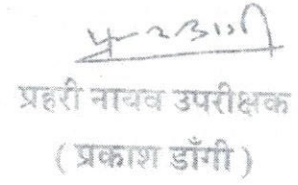 प्रहरी नायव उपरीक्षक
( प्रकाश डाँगी )